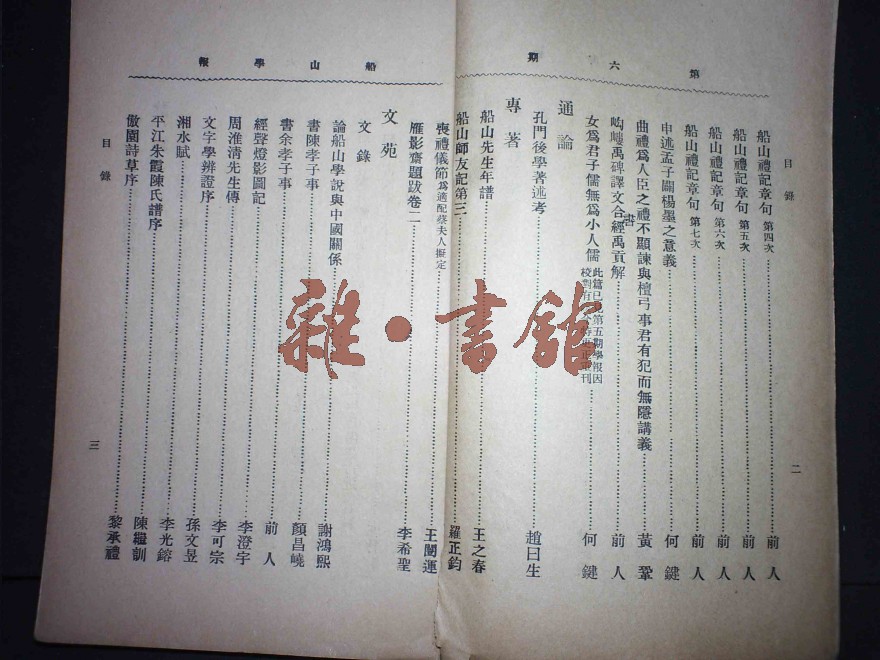 第六期
目錄
船山禮記章句 第四次 前人
船山禮記章句 第五次 前人
船山禮記章句 第六次 前人
船山禮記章句 第七次 前人
申述孟子闢楊墨之意義 何鍵
曲禮爲人臣之禮不顯諫與檀弓事君有犯而無隱講義 黃鞏
岣嶁禹碑譯文合書經禹貢解 前人
女爲君子儒無爲小人儒 此篇已見第五期學報因校對有 刊 何鍵
二
通論
孔門後學著述考 趙日生
專著
船山先生年譜 王之春
船山師友記第三 羅正鈞
船山學報
喪禮儀節 爲適配蔡夫人擬定 王闓運
雁影齋題跋卷二 李希聖
文苑
文錄
論船山學說與中國關係 謝鴻熙
書陳孝子事 顏昌嶢
書余孝子事 前人
經聲燈影圖記 李澄宇
周淮清先生傳 李可宗
文字學辨證序 孫文昱
湘水賦 李光鎔
平江朱霞陳氏譜序 陳繼訓
傲園詩草序 黎承禮
目錄
三
雜·書館